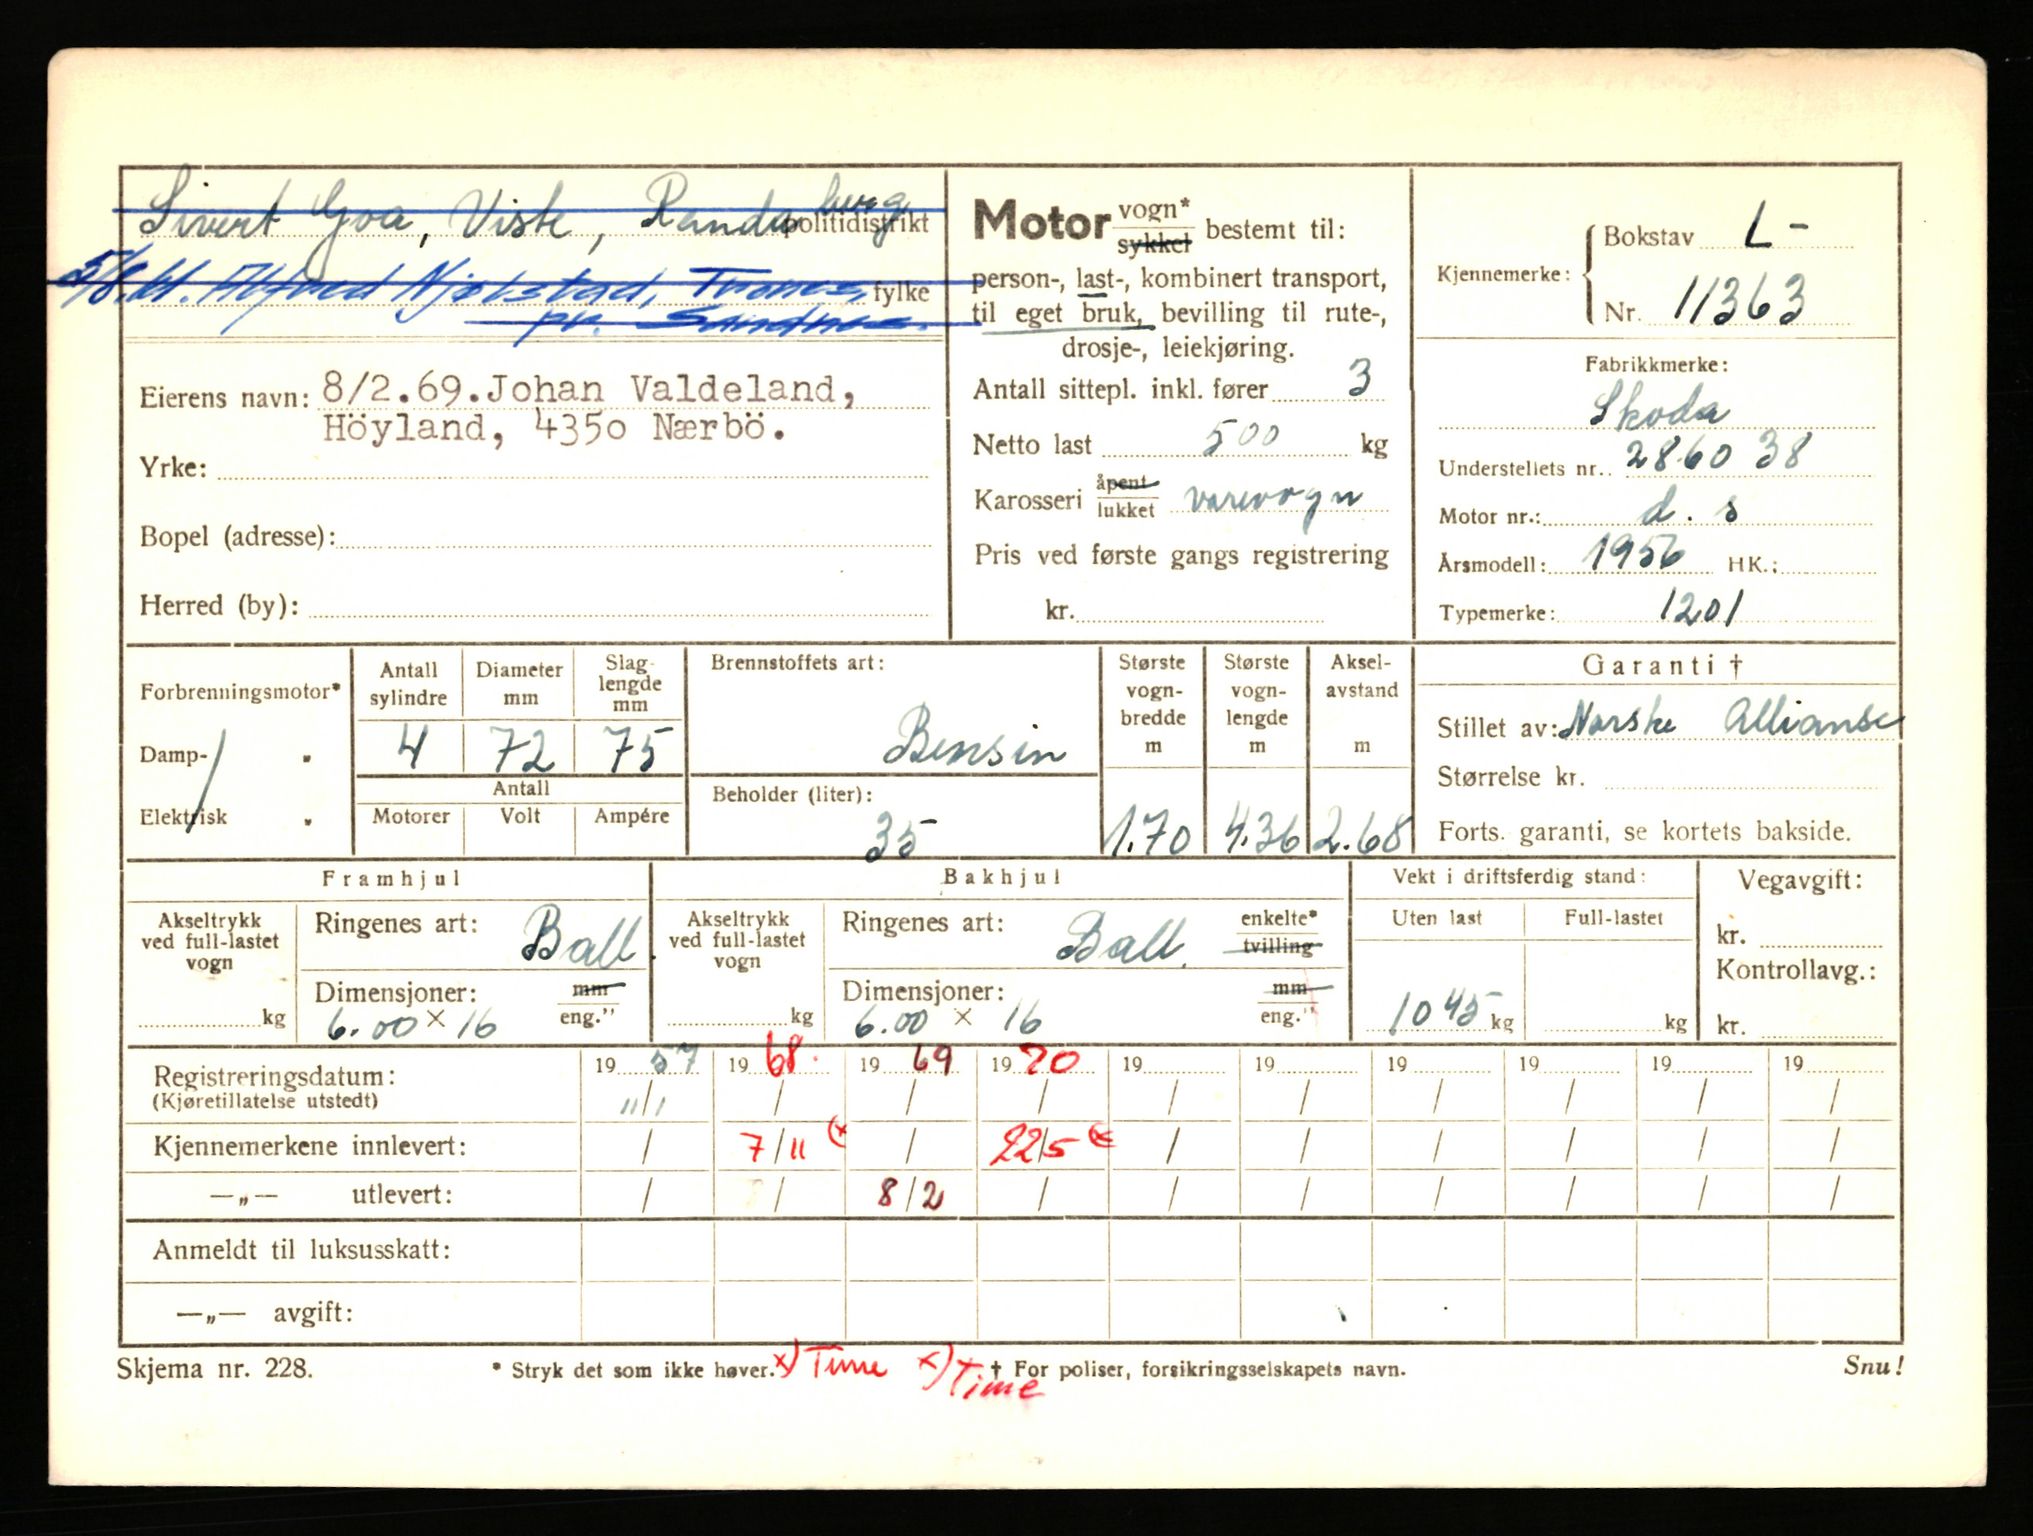 Sivert Goa, Viste, Randaberg politidistrikt
Alfred Njølstad, fylke
pr. Sandnes.
Eierens navn: 8/2.69.Johan Valdeland,
Höyland, 4350 Nærbö.
Yrke:
Bopel (adresse):
Herred (by):
Motor vogn* sykkel bestemt til:
person-, last-, kombinert transport,
til eget bruk, bevilling til rute-,
drosje-, leiekjøring.
Antall sittepl. inkl. fører 3
Netto last 500 kg
Karosseri åpent lukket varevogn
Pris ved første gangs registrering
kr.
Kjennemerke: Bokstav L -
Nr. 11363
Fabrikkmerke:
Skoda
Understellets nr. 286038
Motor nr.: d. s
Årsmodell: 1956 HK.:
Typemerke: 1201
Forbrenningsmotor*
Damp- "
Elektrisk "
Antall sylindre Diameter mm Slaglengde mm
4 72 75
Antall
Motorer Volt Ampére
Brennstoffets art:
Bensin
Beholder (liter):
35
Største vognbredde m 1.70
Største vognlengde m 4.36
Akselavstand m 2.68
Garanti †
Stillet av: Norske Allianse
Størrelse kr.
Forts. garanti, se kortets bakside.
Framhjul
Akseltrykk ved full-lastet vogn kg
Ringenes art: Ball.
Dimensjoner: mm
6.00 × 16 eng."
Bakhjul
Akseltrykk ved full-lastet vogn kg
Ringenes art: Ball. enkelte* tvilling
Dimensjoner: mm
6.00 × 16 eng."
Vekt i driftsferdig stand:
Uten last Full-lastet
1045 kg kg
Vegavgift:
kr.
Kontrollavg.:
kr.
Registreringsdatum: 1957 1968. 1969 1970 19 19 19 19 19 19
(Kjøretillatelse utstedt) 11/1 / / / / / / / / /
Kjennemerkene innlevert: / 7/11 (x / 22/5 (x / / / / / /
—„— utlevert: / / 8/2 / / / / / / /
Anmeldt til luksusskatt:
—„— avgift:
Skjema nr. 228. * Stryk det som ikke høver. x) Time x) Time † For poliser, forsikringsselskapets navn. Snu!